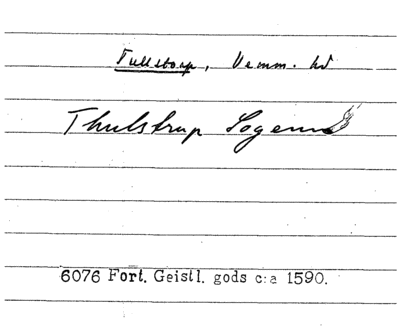 Tullstorp, Vemm. hd
Thulstrup Sogenn
6076 Fort. Geistl. gods c:a 1590.